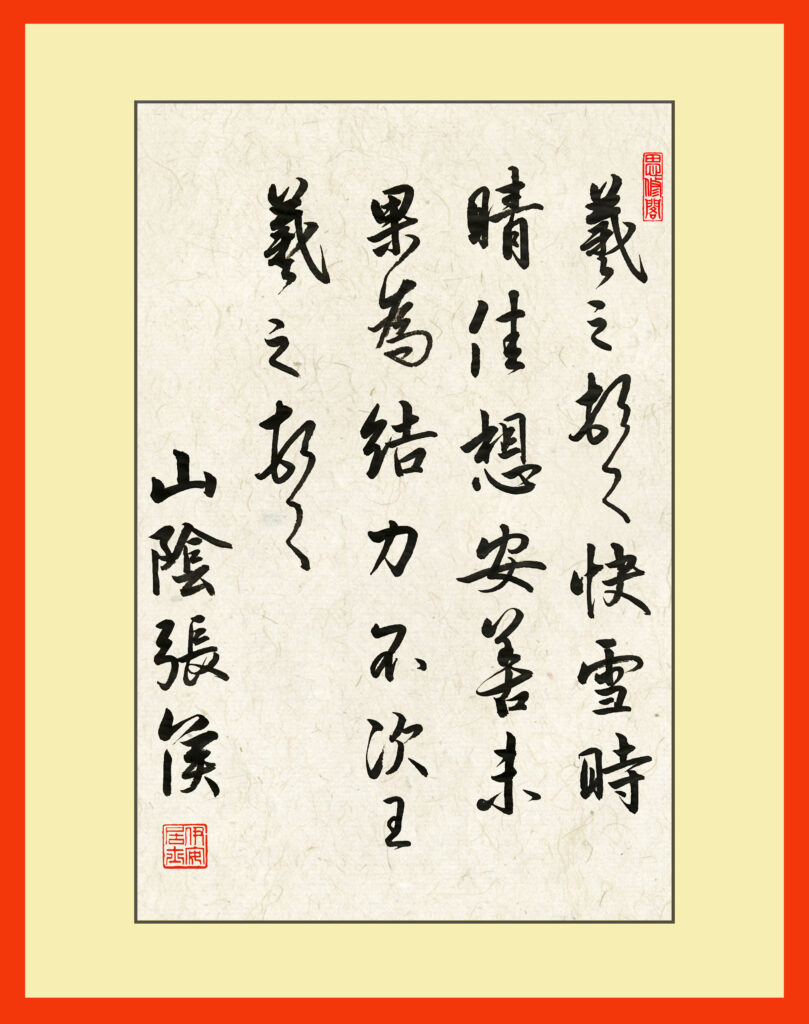 思修閣
羲之頓首快雪時
晴佳想安善未
果為結力不次王
羲之頓首
山陰張侯
伊安
居士